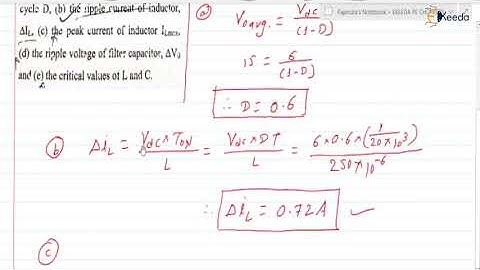 cycle D, (b) the ripple current of inductor,
ΔI_L, (c) the peak current of inductor I_Lmax,
(d) the ripple voltage of filter capacitor, ΔV_0
and (e) the critical values of L and C.
(a) V_0avg. = V_dc / (1-D)
15 = 6 / (1-D)
∴ D = 0.6
(b) Δi_L = V_dc × T_ON / L = V_dc × DT / L = 6 × 0.6 × (1 / 20 × 10^3) / 250 × 10^-6
∴ Δi_L = 0.72A ✓
(c)
Ekeeda